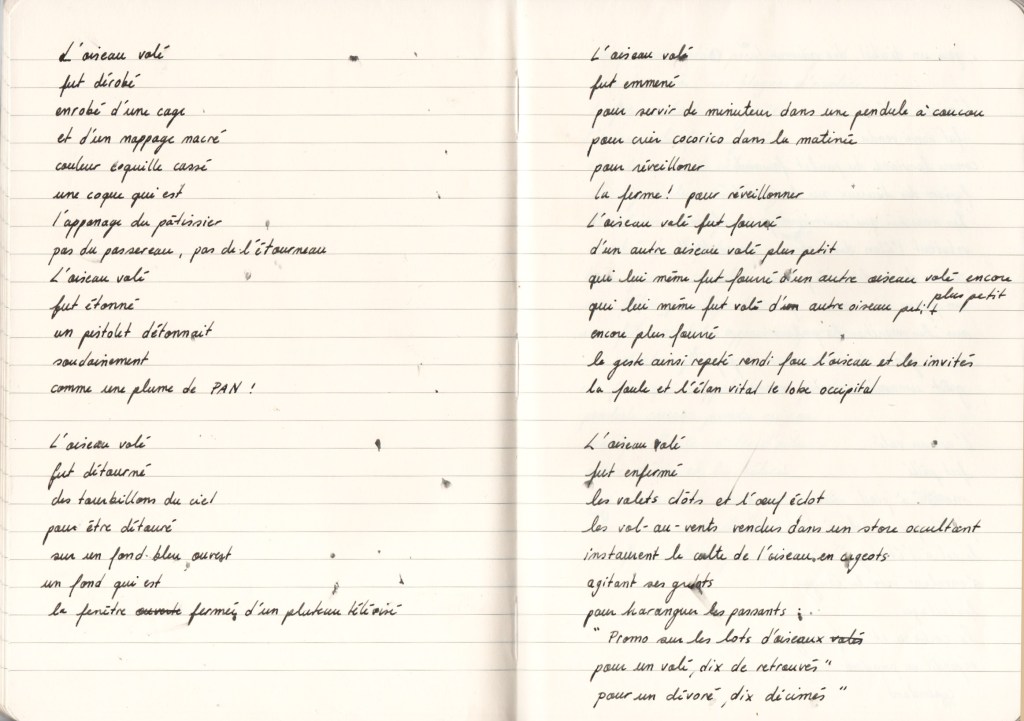 L'oiseau volé
fut dérobé
enrobé d'une cage
et d'un nappage nacré
couleur coquille cassé
une coque qui est
l'apponage du pâtissier
pas du passereau, pas de l'étourneau
L'oiseau volé
fut étonné
un pistolet détonnait
soudainement
comme une plume de PAN !
L'oiseau volé
fut détourné
des tourbillons du ciel
pour être détouré
sur un fond-bleu ouvert
un fond qui est
la fenêtre ouverte fermée d'un plateau télévisé
L'oiseau volé
fut emmené
pour servir de minuteur dans une pendule à coucou
pour crier cocorico dans la matinée
pour réveilloner
la ferme ! pour réveillonner
L'oiseau volé fut fourré
d'un autre oiseau volé plus petit
qui lui même fut fourré d'un autre oiseau volé encore plus petit
qui lui même fut volé d'un autre oiseau petit
encore plus fourré
le geste ainsi repeté rendi fou l'oiseau et les invités
la foule et l'élan vital le lobe occipital
L'oiseau volé
fut enfermé
les volets clôts et l'œuf éclot
les vol-au-vents vendus dans un store occultant
instaurent le culte de l'oiseau en cageots
agitant ses gruots
pour haranguer les passants :
" Promo sur les lots d'oiseaux volés
pour un volé, dix de retrouvés "
pour un dévoré, dix décimés "